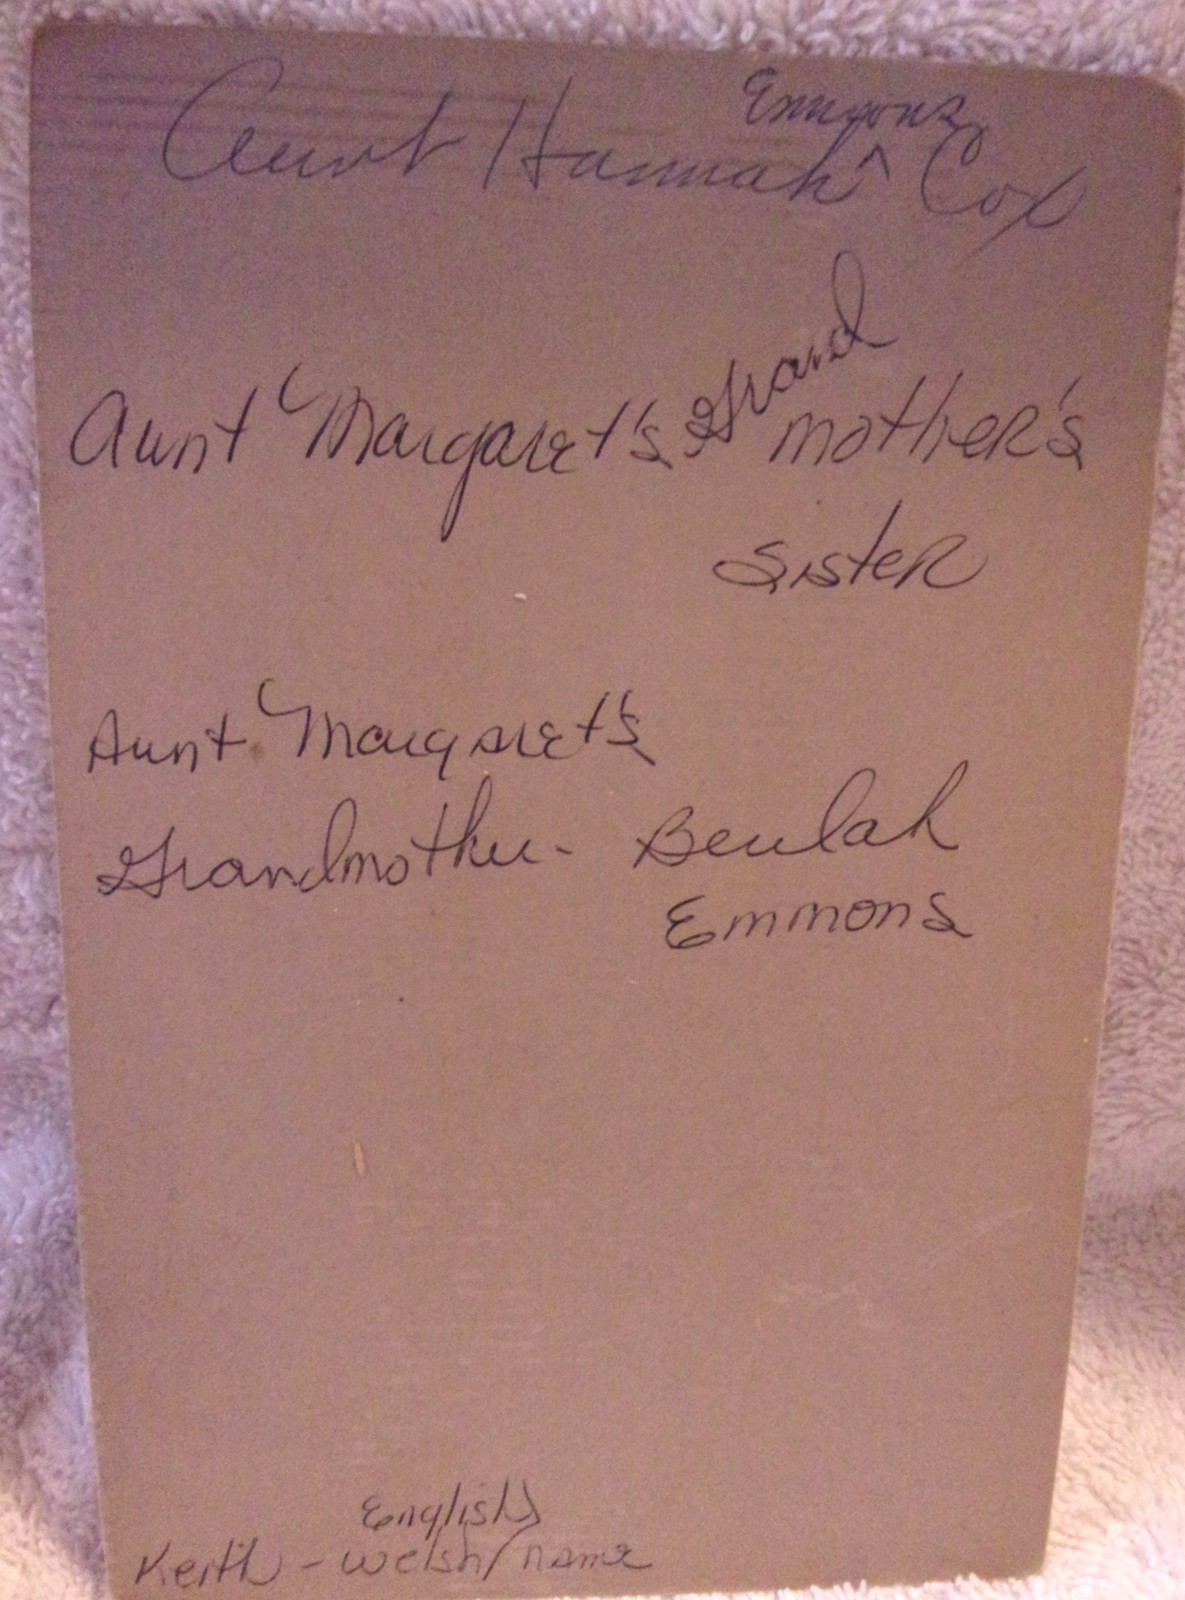 Emmons
Aunt Hannah ^ Cox
Aunt Margaret's Grand mother's
Sister
Aunt Margaret's
Grandmother - Beulah
Emmons
English
Keith - Welsh/name